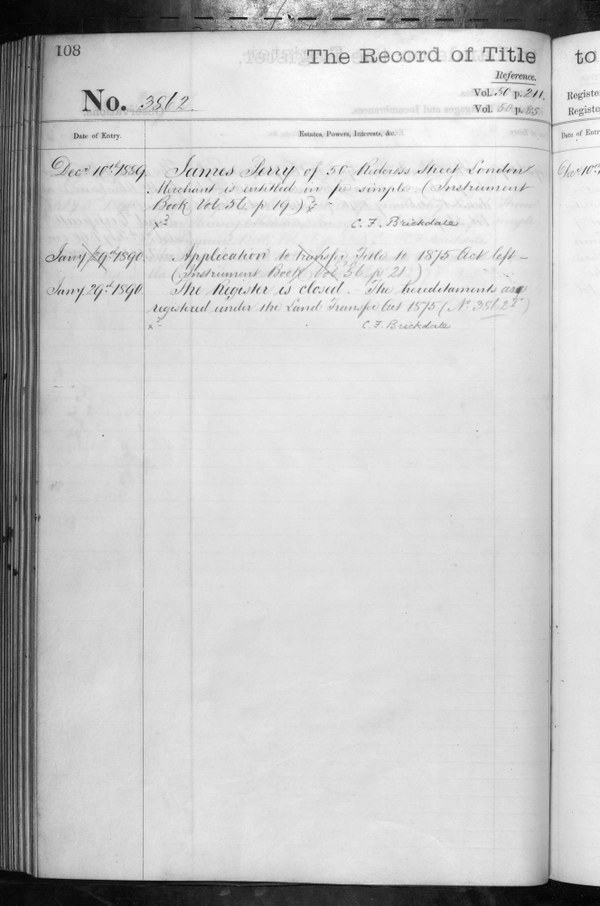 108
The Record of Title
Reference.
No. 3862 Vol. 50 p. 211.
Vol. 50 p. 85
Date of Entry. Estates, Powers, Interests, &c.
Decr 10th 1889. James Perry of 50 Street London
Merchant is entitled in fee simple (Instrument
Book Vol 56 p 19)
x C. F. Brickdale
Jany 29th 1890 Application to transfer Title to 1875 Act left –
(Instrument Book Vol 56 p 21)
Jany 29th 1890 The Register is closed. The hereditaments are
registered under the Land Transfer Act 1875 (No 3862)
x C. F. Brickdale
to
Registe
Registe
Date of Entr
Decr 10th